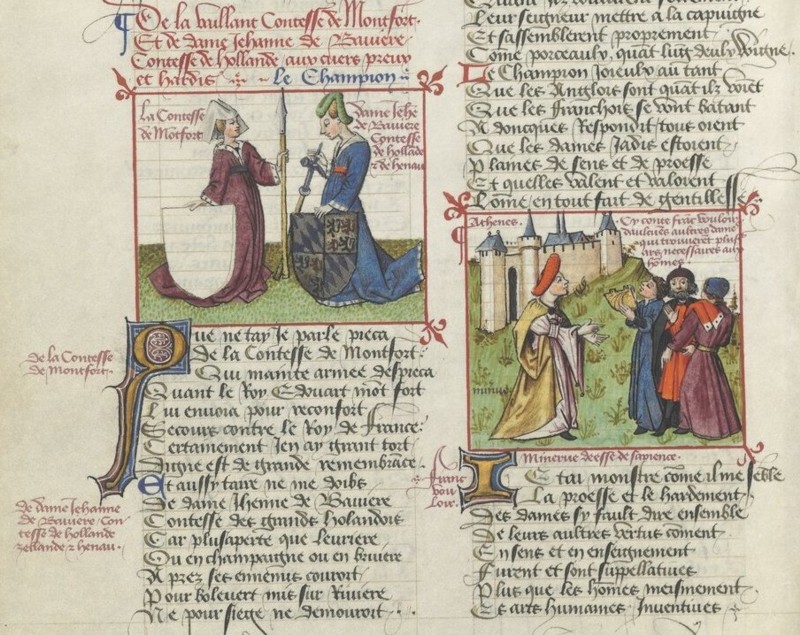 De la vaillant Contesse de Montfort.
Et de dame Jehanne de Baviere
Contesse de hollande aux cuers preux
et hardis
le Champion
La Contesse
de Motfort
dame Jehe
de Baviere
Contesse
de hollade
z de henau
Que ne tay Je parle pieca
De la Contesse de Montfort
Qui mainte armee despieca
Quant le Roy Edouart mot fort
Lui envoia pour reconfort
Secours contre le Roy de France
Certainement Jen ay grant tort
Digne est de grande remembrāce
Et aussy taire ne me doibs
De dame Jhenne de Baviere
Contesse des grands holandois
Car plusaperte que levriere
Ou en champaigne ou en briiere
A prez ses ennemis couroit
Pour bolevert mis sur Riviere
Ne pour siege ne demouroit
de la Contesse
de Montfort
de dame Jehanne
de Baviere Con-
tesse de hollande
zellande z henau
Leur seigneur mettre a la capuigne
Et sassemblerent proprement
Come porceaulx, quāt luig deulx
Le Champion Joieulx au tant
Que les Anglois sont quāt ilz voiēt
Que les franchois se vont batant
A doncques Respondit tous oient
Que les dames Jadis estoient
Plames de sens et de proesse
Et quelles valent et valoient
Lome en tout fait de gentillesse
Athenes
Cy conte frāc vouloir
daulcuns aultres dames
qui trouverēt plus
ars necessaires aux
homes
Minerve deesse de sapience
Franc
Vou
Loir
Je tai monstre cōme il me sēble
La proesse et le hardement
Des dames sy fault dire ensemble
De leurs aultres vertus cōment
En sens et en enseignement
Furent et sont suppellatives
Plus que les hōmes meismement
Es arts humaines Inventives